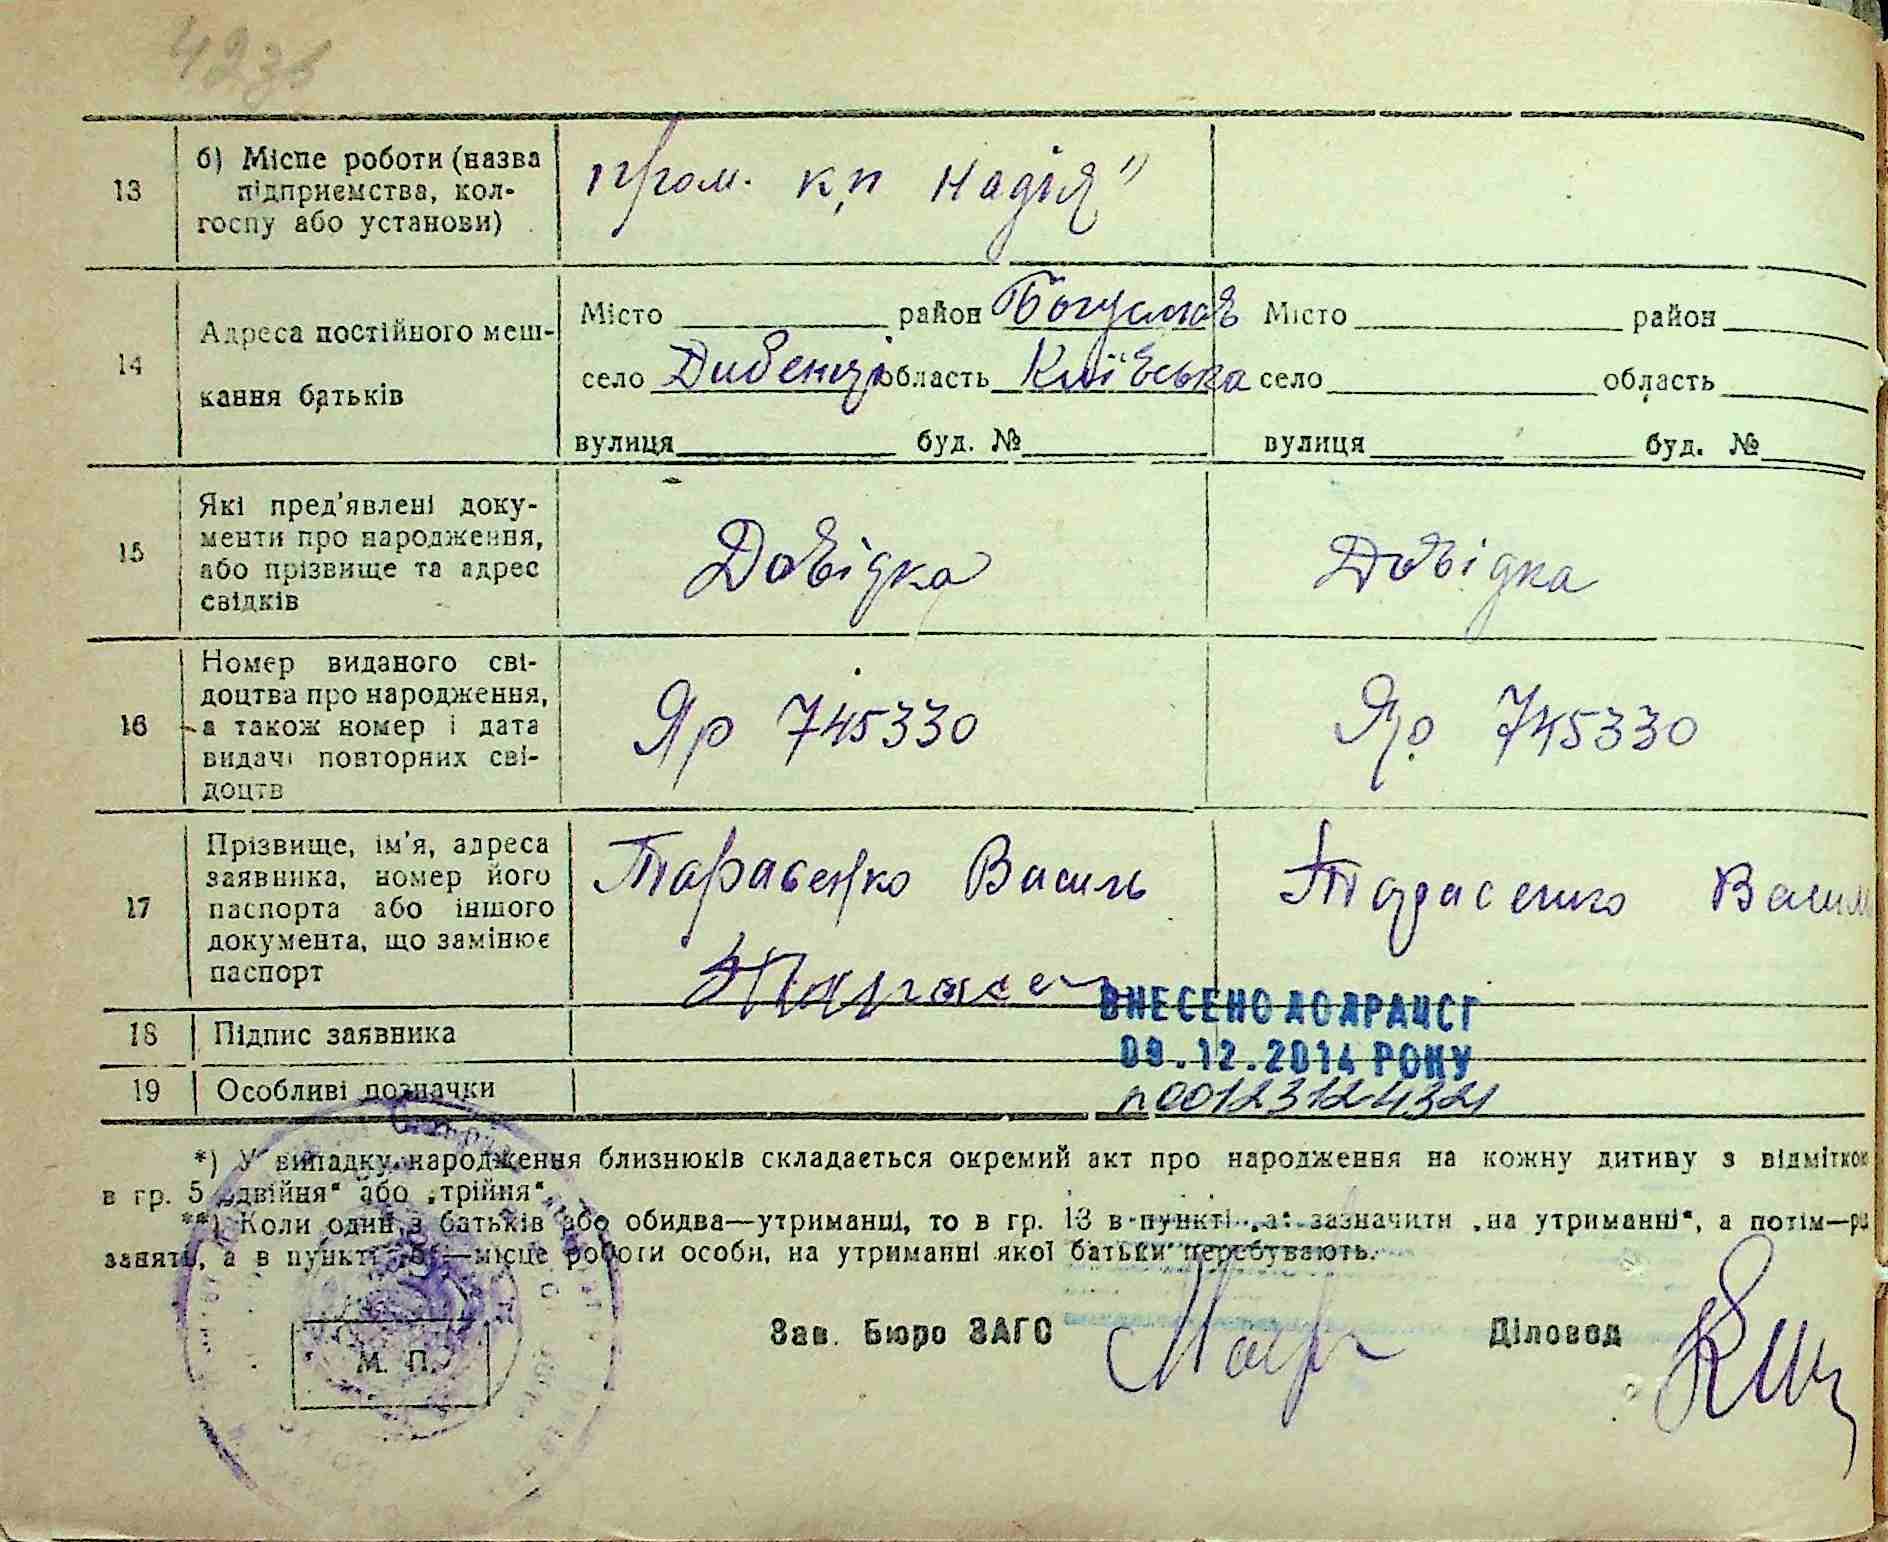 42зв
13
б) Місце роботи (назва
підприємства, кол-
госпу або установи)
Пром. кп Надія"
14
Адреса постійного меш-
кання батьків
Місто район Богуслав
село Дибенці область Київська
вулиця буд. №
Місто район
село область
вулиця буд. №
15
Які пред'явлені доку-
менти про народження,
або прізвище та адрес
свідків
Довідка
Довідка
16
Номер виданого сві-
доцтва про народження,
а також номер і дата
видачі повторних сві-
доцтв
Яр 745330
Яр. 745330
17
Прізвище, ім'я, адреса
заявника, номер його
паспорта або іншого
документа, що замінює
паспорт
Тарасенко Василь
Тарасенко Василь
18
Підпис заявника
ВНЕСЕНО ДО ДРАЦСГ
09.12.2014 РОКУ
19
Особливі позначки
п00123124321
*) У випадку народження близнюків складається окремий акт про народження на кожну дитину з відміткою
в гр. 5 „двійня“ або „трійня“.
**) Коли один з батьків або обидва—утриманці, то в гр. 13 в пункті „а“ зазначити „на утриманні“, а потім—рід
занять, а в пункті „б“—місце роботи особи, на утриманні якої батьки перебувають.
М. П.
Зав. Бюро ЗАГС
Діловод